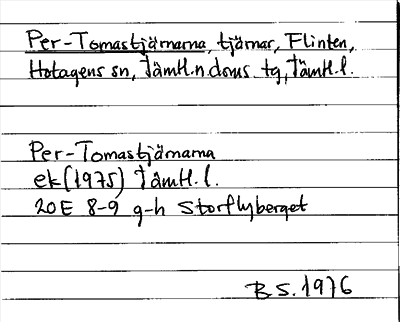 Per-Tomastjärnarna, tjärnar, Flinten,
Hotagens sn, Jämtl.n.doms. tg, Jämtl.l.
Per-Tomastjärnarna
ek (1975) Jämtl. l.
20E 8-9 g-h Storflyberget
B S. 1976